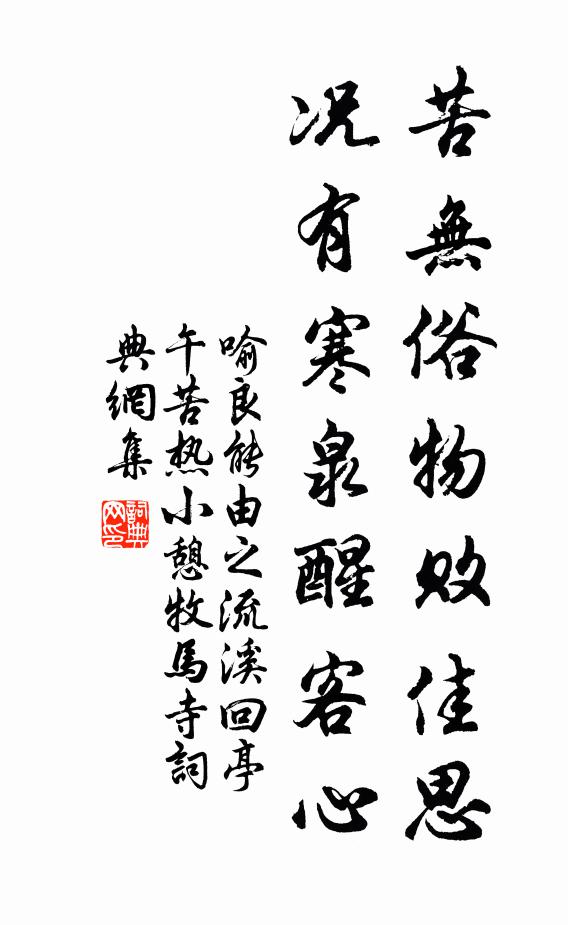 苦無俗物敗佳思
况有寒泉醒客心
喻良能由之流溪回亭
午苦热小憩牧馬寺詞
典網集
詞典
网印